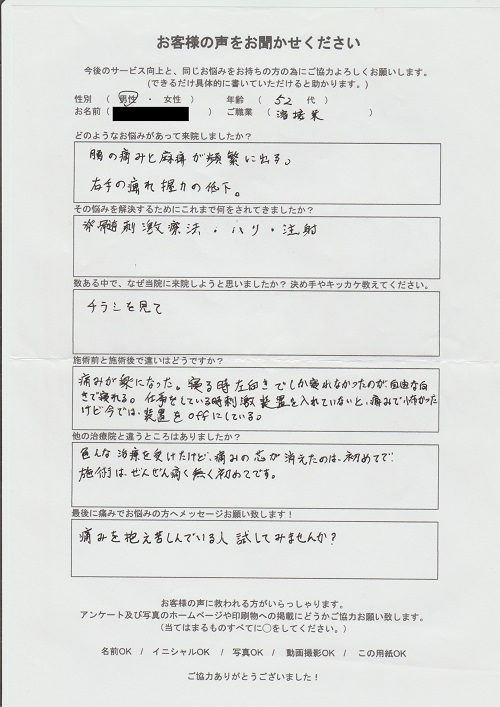 お客様の声をお聞かせください
今後のサービス向上と、同じお悩みをお持ちの方の為にご協力よろしくお願いします。
(できるだけ具体的に書いていただけると助かります。)
性別 ( 男性 ・ 女性 ) 年齢 ( 52 代 )
お名前( ) ご職業 ( 溶接業 )
どのようなお悩みがあって来院しましたか?
腰の痛みと麻痺が頻繁に出る。
右手の痺れ握力の低下。
その悩みを解決するためにこれまで何をされてきましたか?
脊髄刺激療法・ハリ・注射
数ある中で、なぜ当院に来院しようと思いましたか? 決め手やキッカケ教えてください。
チラシを見て
施術前と施術後で違いはどうですか?
痛みが楽になった。寝る時左向きでしか寝れなかったのが、自由な向
きで寝れる。仕事をしている時刺激装置を入れていないと、痛みで怖かった
けど今では、装置をoffにしている。
他の治療院と違うところはありましたか?
色んな治療を受けたけど、痛みの芯が消えたのは、初めてで
施術は、ぜんぜん痛く無く初めてです。
最後に痛みでお悩みの方へメッセージお願い致します!
痛みを抱え苦しんでいる人試してみませんか?
お客様の声に救われる方がいらっしゃります。
アンケート及び写真のホームページや印刷物への掲載にどうかご協力お願い致します。
(当てはまるものすべてに○をしてください。)
名前OK / イニシャルOK / 写真OK / 動画撮影OK / この用紙OK
ご協力ありがとうございました!